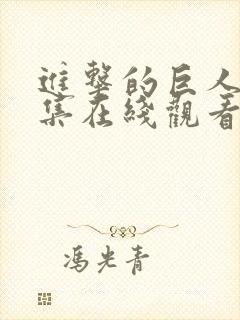 進擊的巨人
集在綫觀看
馮光青